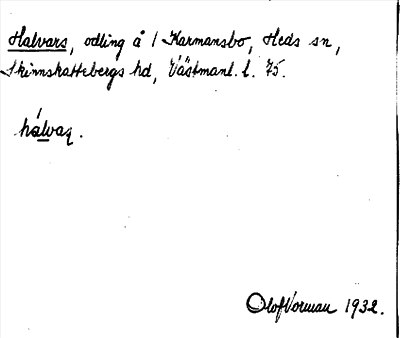 Halvars, odling å 1 Karmansbo, Heds sn,
Skinnskattebergs hd, Västmanl. l. 75.
hálvaʂ.
Olof Vorman 1932.